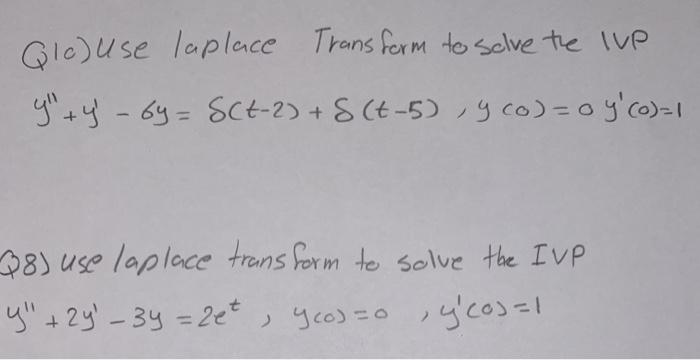 Q1c) Use laplace Transform to solve the IVP
y'' + y' - 6y = δ(t-2) + δ(t-5) , y(0) = 0 y'(0)=1
Q8) use laplace transform to solve the IVP
y'' + 2y' - 3y = 2e^t , y(0)=0 , y'(0)=1